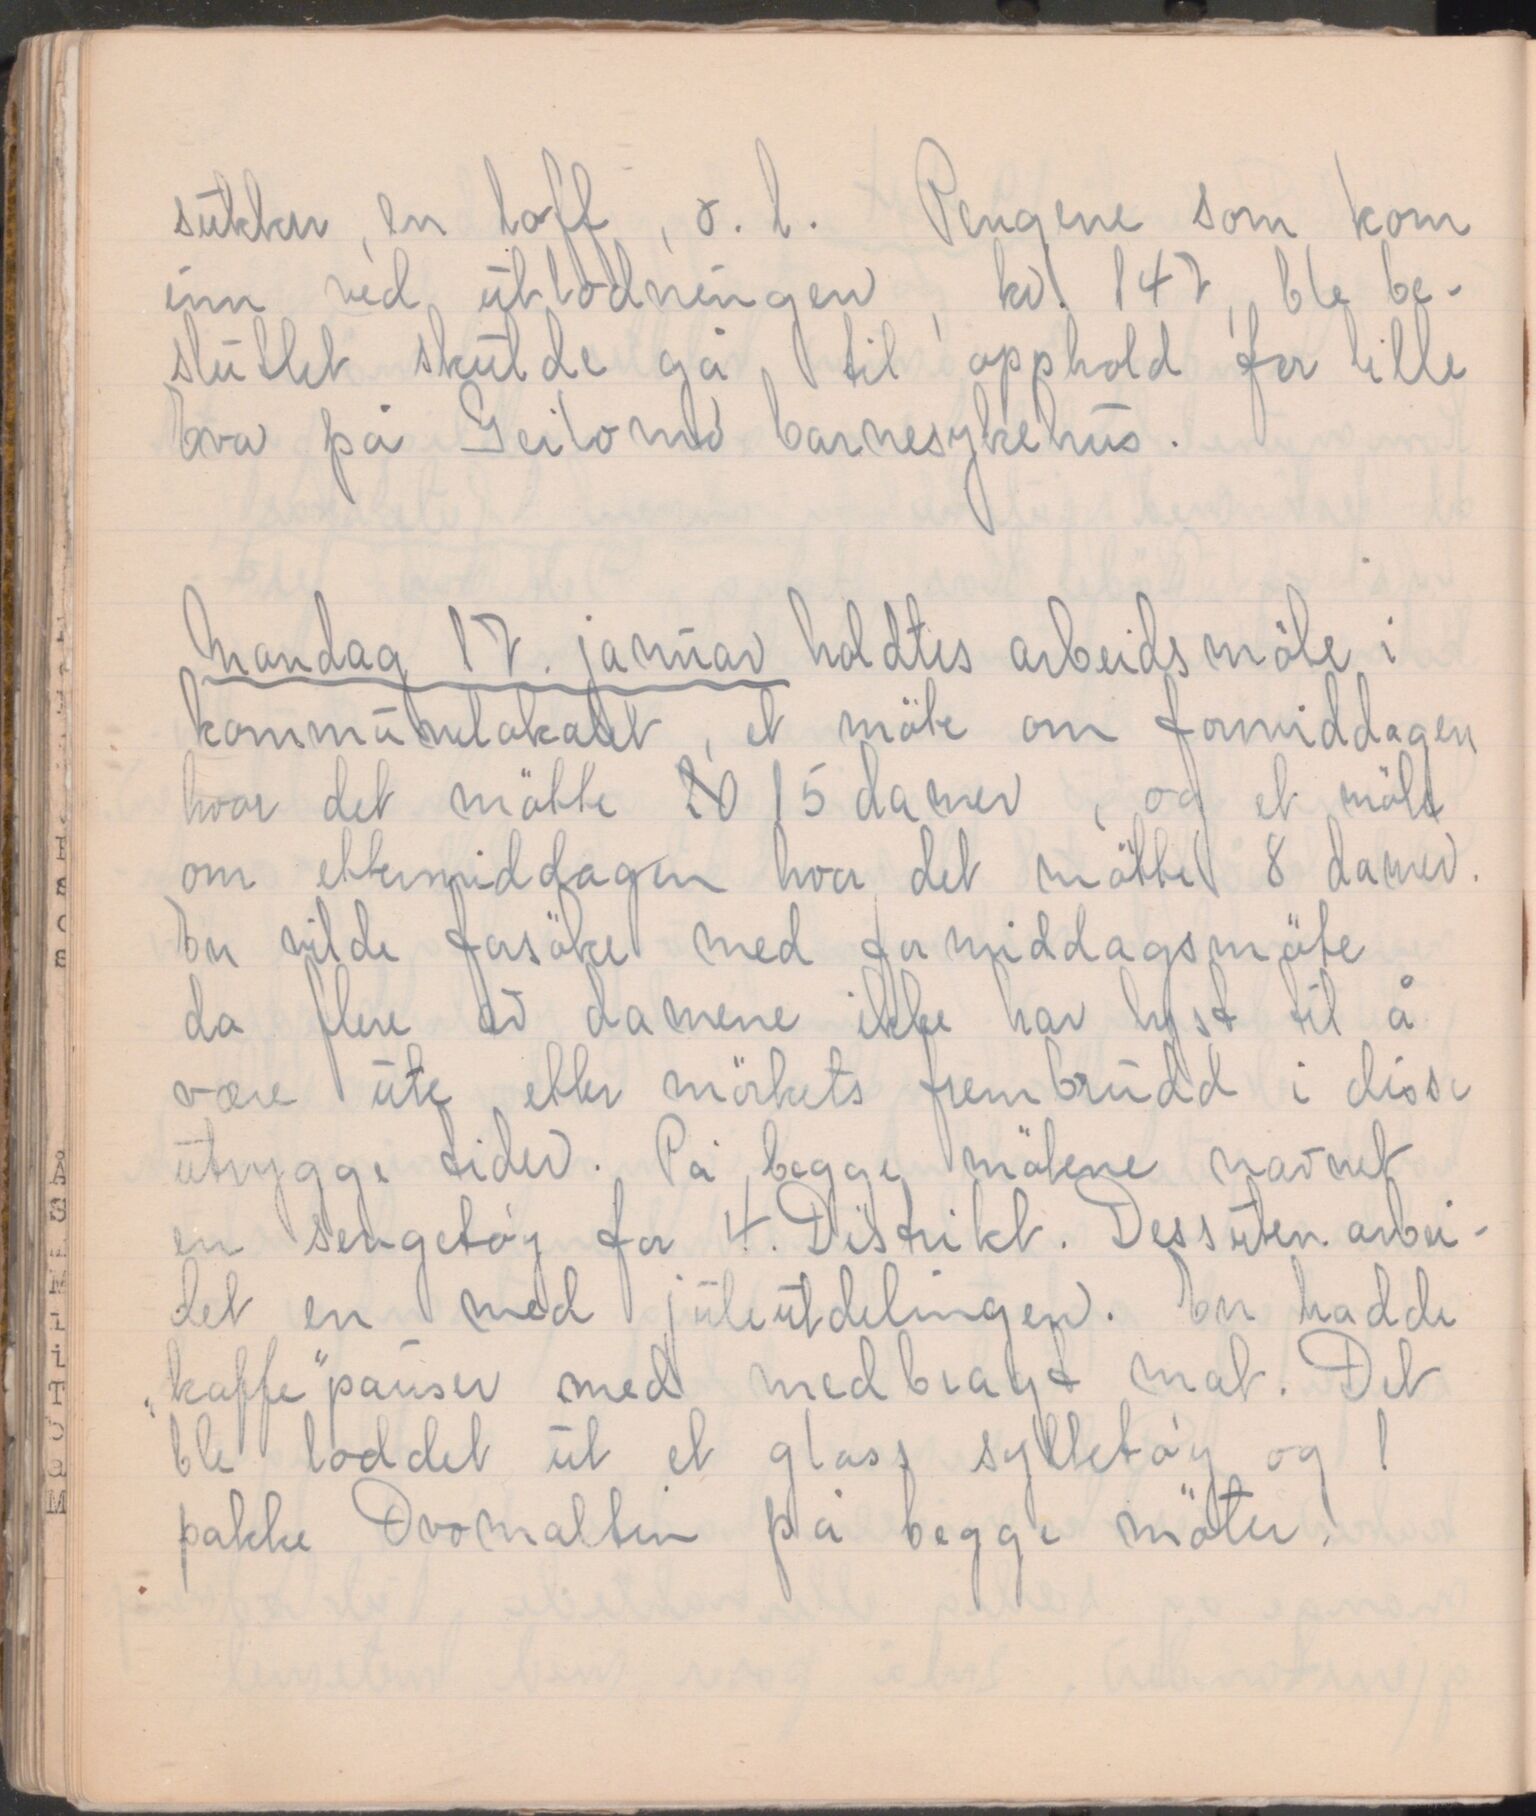 sukker, en loff, o. l. Pengene som kom
inn ved utlodningen, kr. 147, ble be-
sluttet skulde gå til opphold for lille
Eva på Geilomo barnesykehus.
Mandag 17. januar holdtes arbeidsmöte i
kommunelokalet, et möte om formiddagen
hvor det mötte 15 damer, og et möte
om ettermiddagen hvor det mötte 8 damer.
En vilde forsöke med formiddagsmöte
da flere av damene ikke har lyst til å
være ute etter mörkets frembrudd i disse
utrygge tider. På begge mötene navnet
en sengetöy for 4. Distrikt. Dessuten arbei-
det en med juleutdelingen. En hadde
„kaffe" pauser med medbragt mat. Det
ble loddet ut et glass syltetöy og 1
pakke Ovomaltin på begge möter.